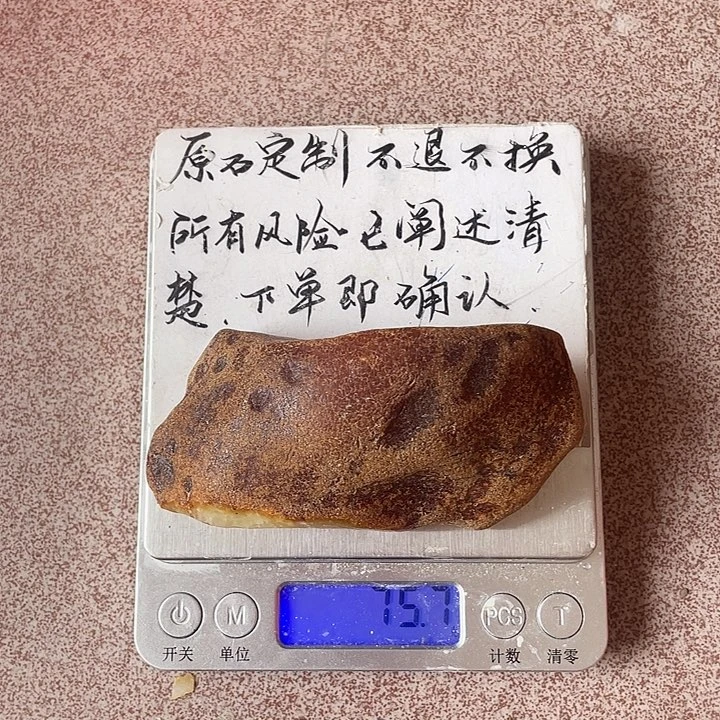 原石定制 不退不换
所有风险已阐述清
楚.下单即确认.
75.7
M PCS T
开关 单位 计数 清零